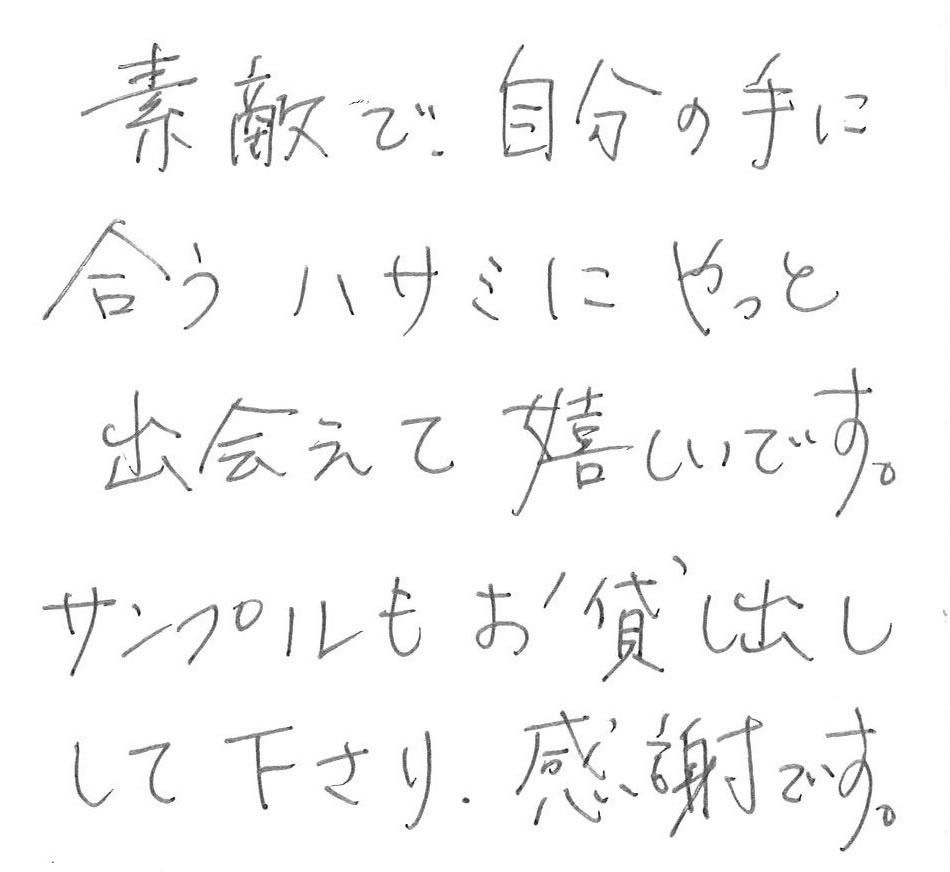 素敵で、自分の手に
合うハサミにやっと
出会えて嬉しいです。
サンプルもお貸し出し
して下さり、感謝です。